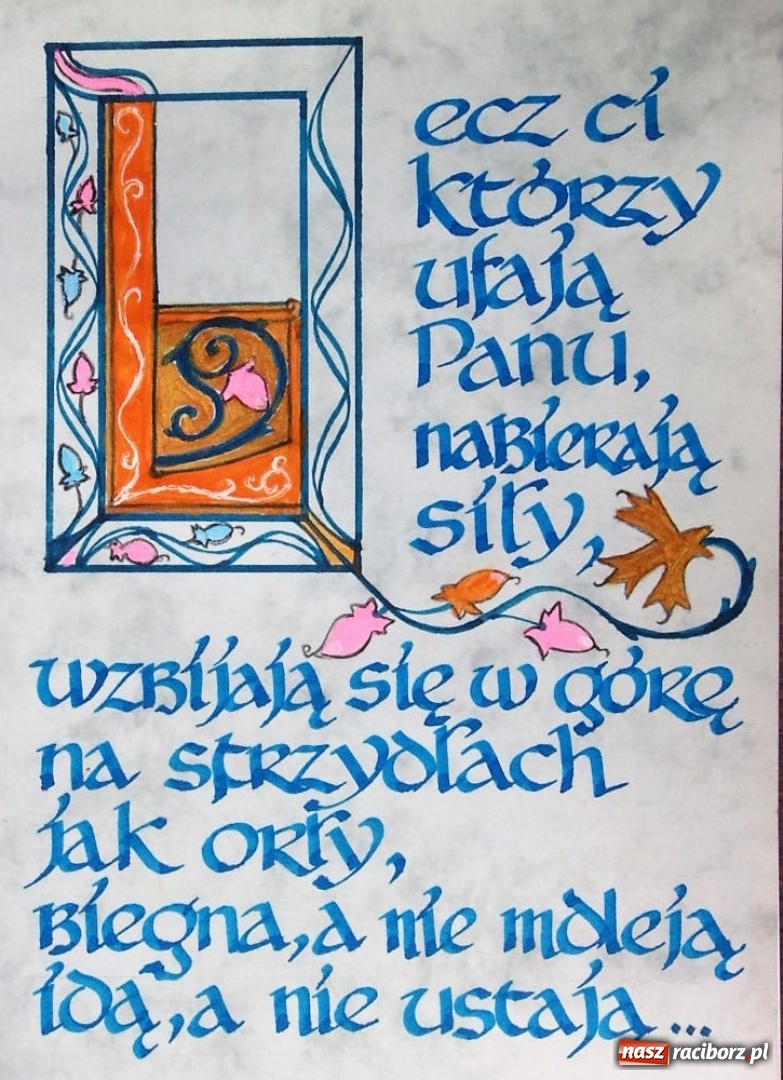 Lecz ci
którzy
ufają
Panu,
nabierają
siły,
wzbijają się w górę
na strzydłach
jak orły,
biegna, a nie mdleją
idą, a nie ustają...
nasz raciborz.pl